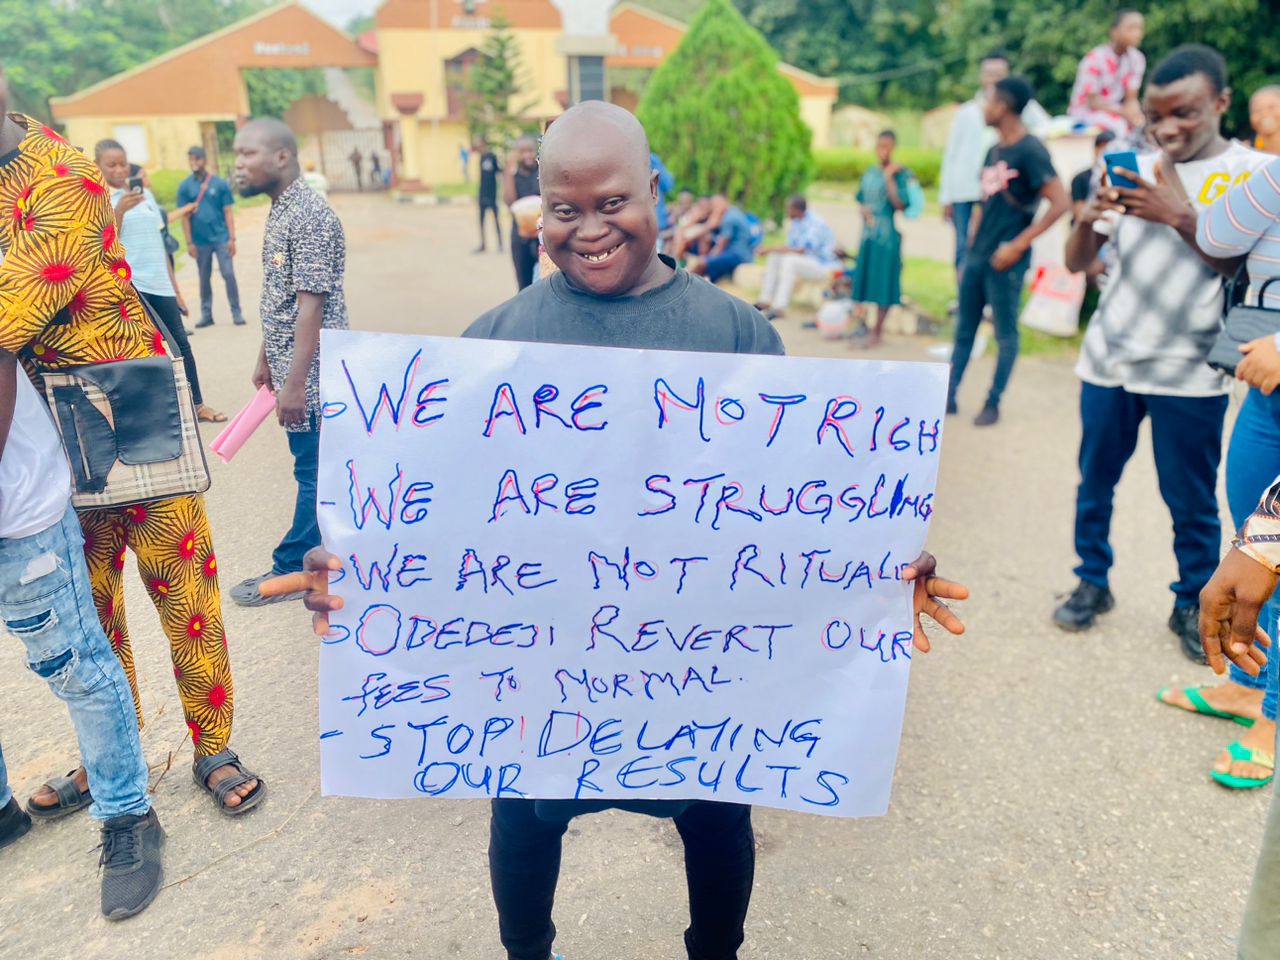 - WE ARE NOT RIGH
- WE ARE STRUGGLING
- WE ARE NOT RITUALI
- ODEDEJI REVERT OUR
FEES TO NORMAL.
- STOP! DELAYING
OUR RESULTS